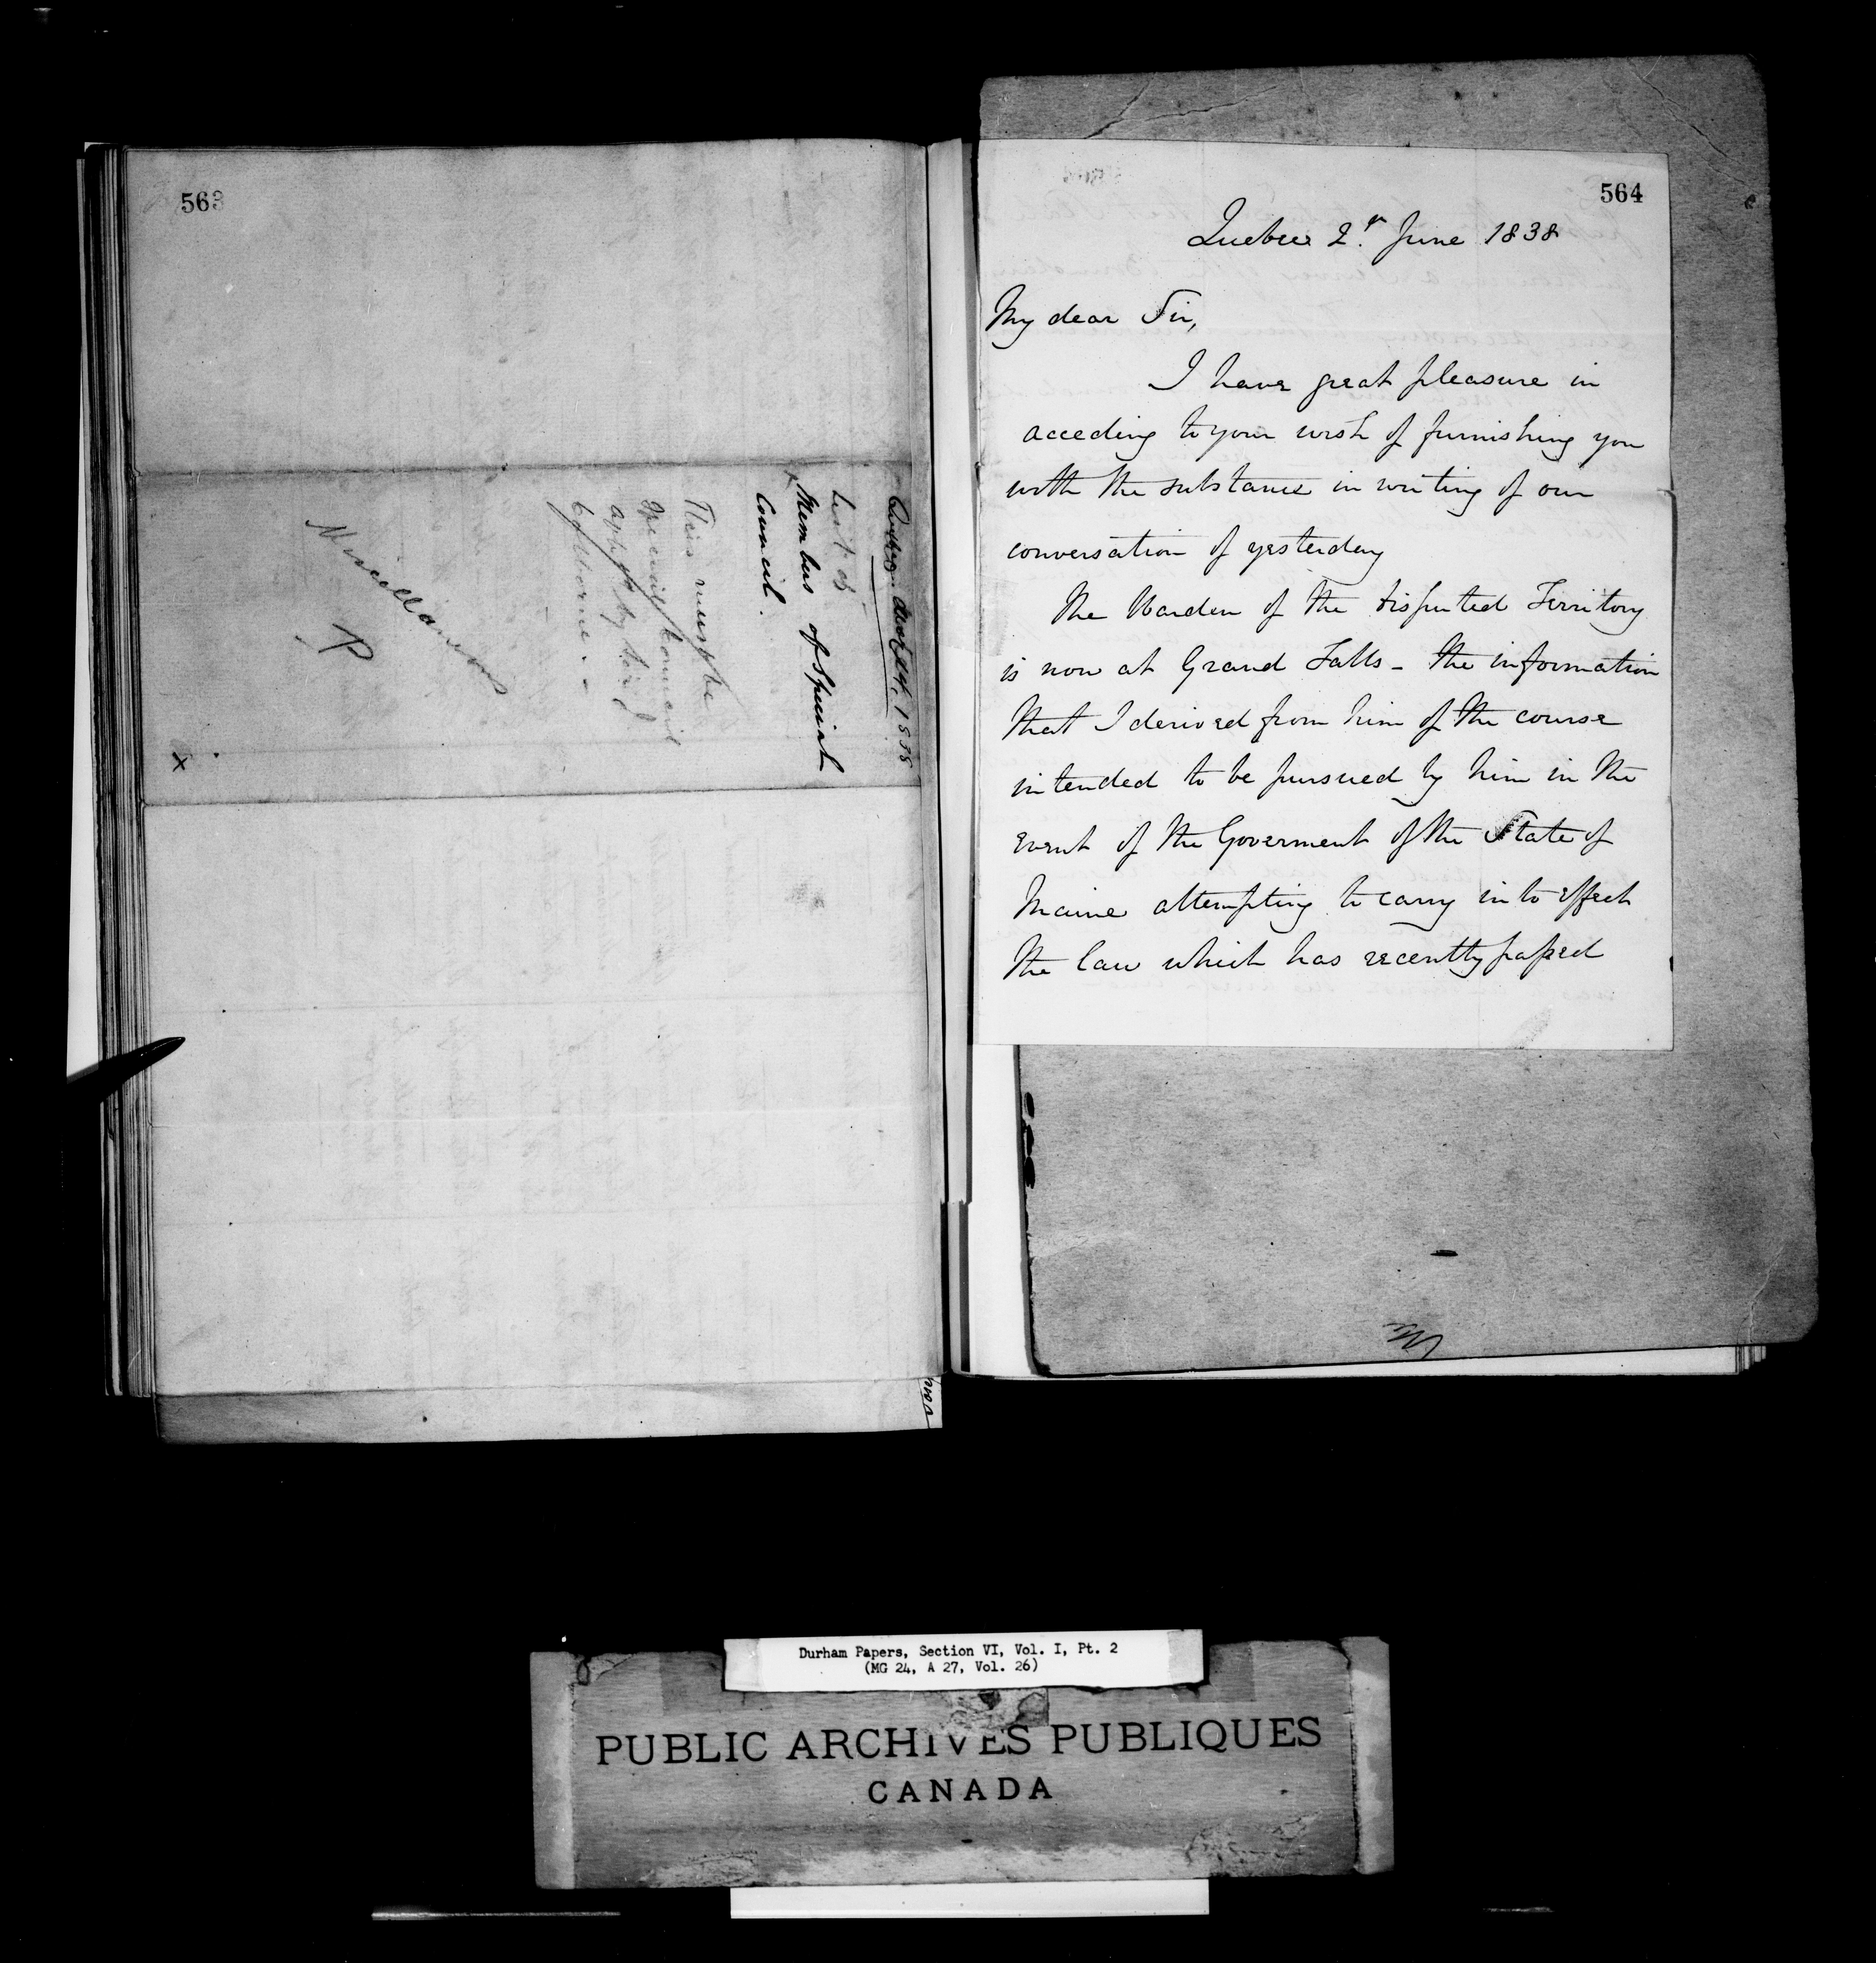 563
List of
Members of Special
Council.
This must be
Special Council
by Sir J
Colborne. -
Miscellaneous
P
x
564
Quebec 2d. June 1838
My dear Sir,
I have great pleasure in
acceding to your wish of furnishing you
with the substance in writing of our
conversation of yesterday
The Warden of the disputed Territory
is now at Grand Falls - the information
that I derived from him of the course
intended to be pursued by him in the
event of the Goverment of the State of
Maine attempting to carry into effect
the law which has recently passed
Durham Papers, Section VI, Vol. I, Pt. 2
(MG 24, A 27, Vol. 26)
PUBLIC ARCHIVES PUBLIQUES
CANADA